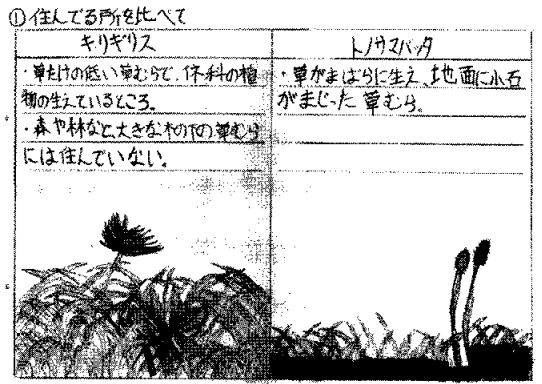 ①住んでる所を比べて
キリギリス
・草たけの低い草むらで、イネ科の植
物の生えているところ。
・森や林など、大きな木の下の草むら
には住んでいない。
トノサマバッタ
・草がまばらに生え、地面に小石
がまじった草むら。